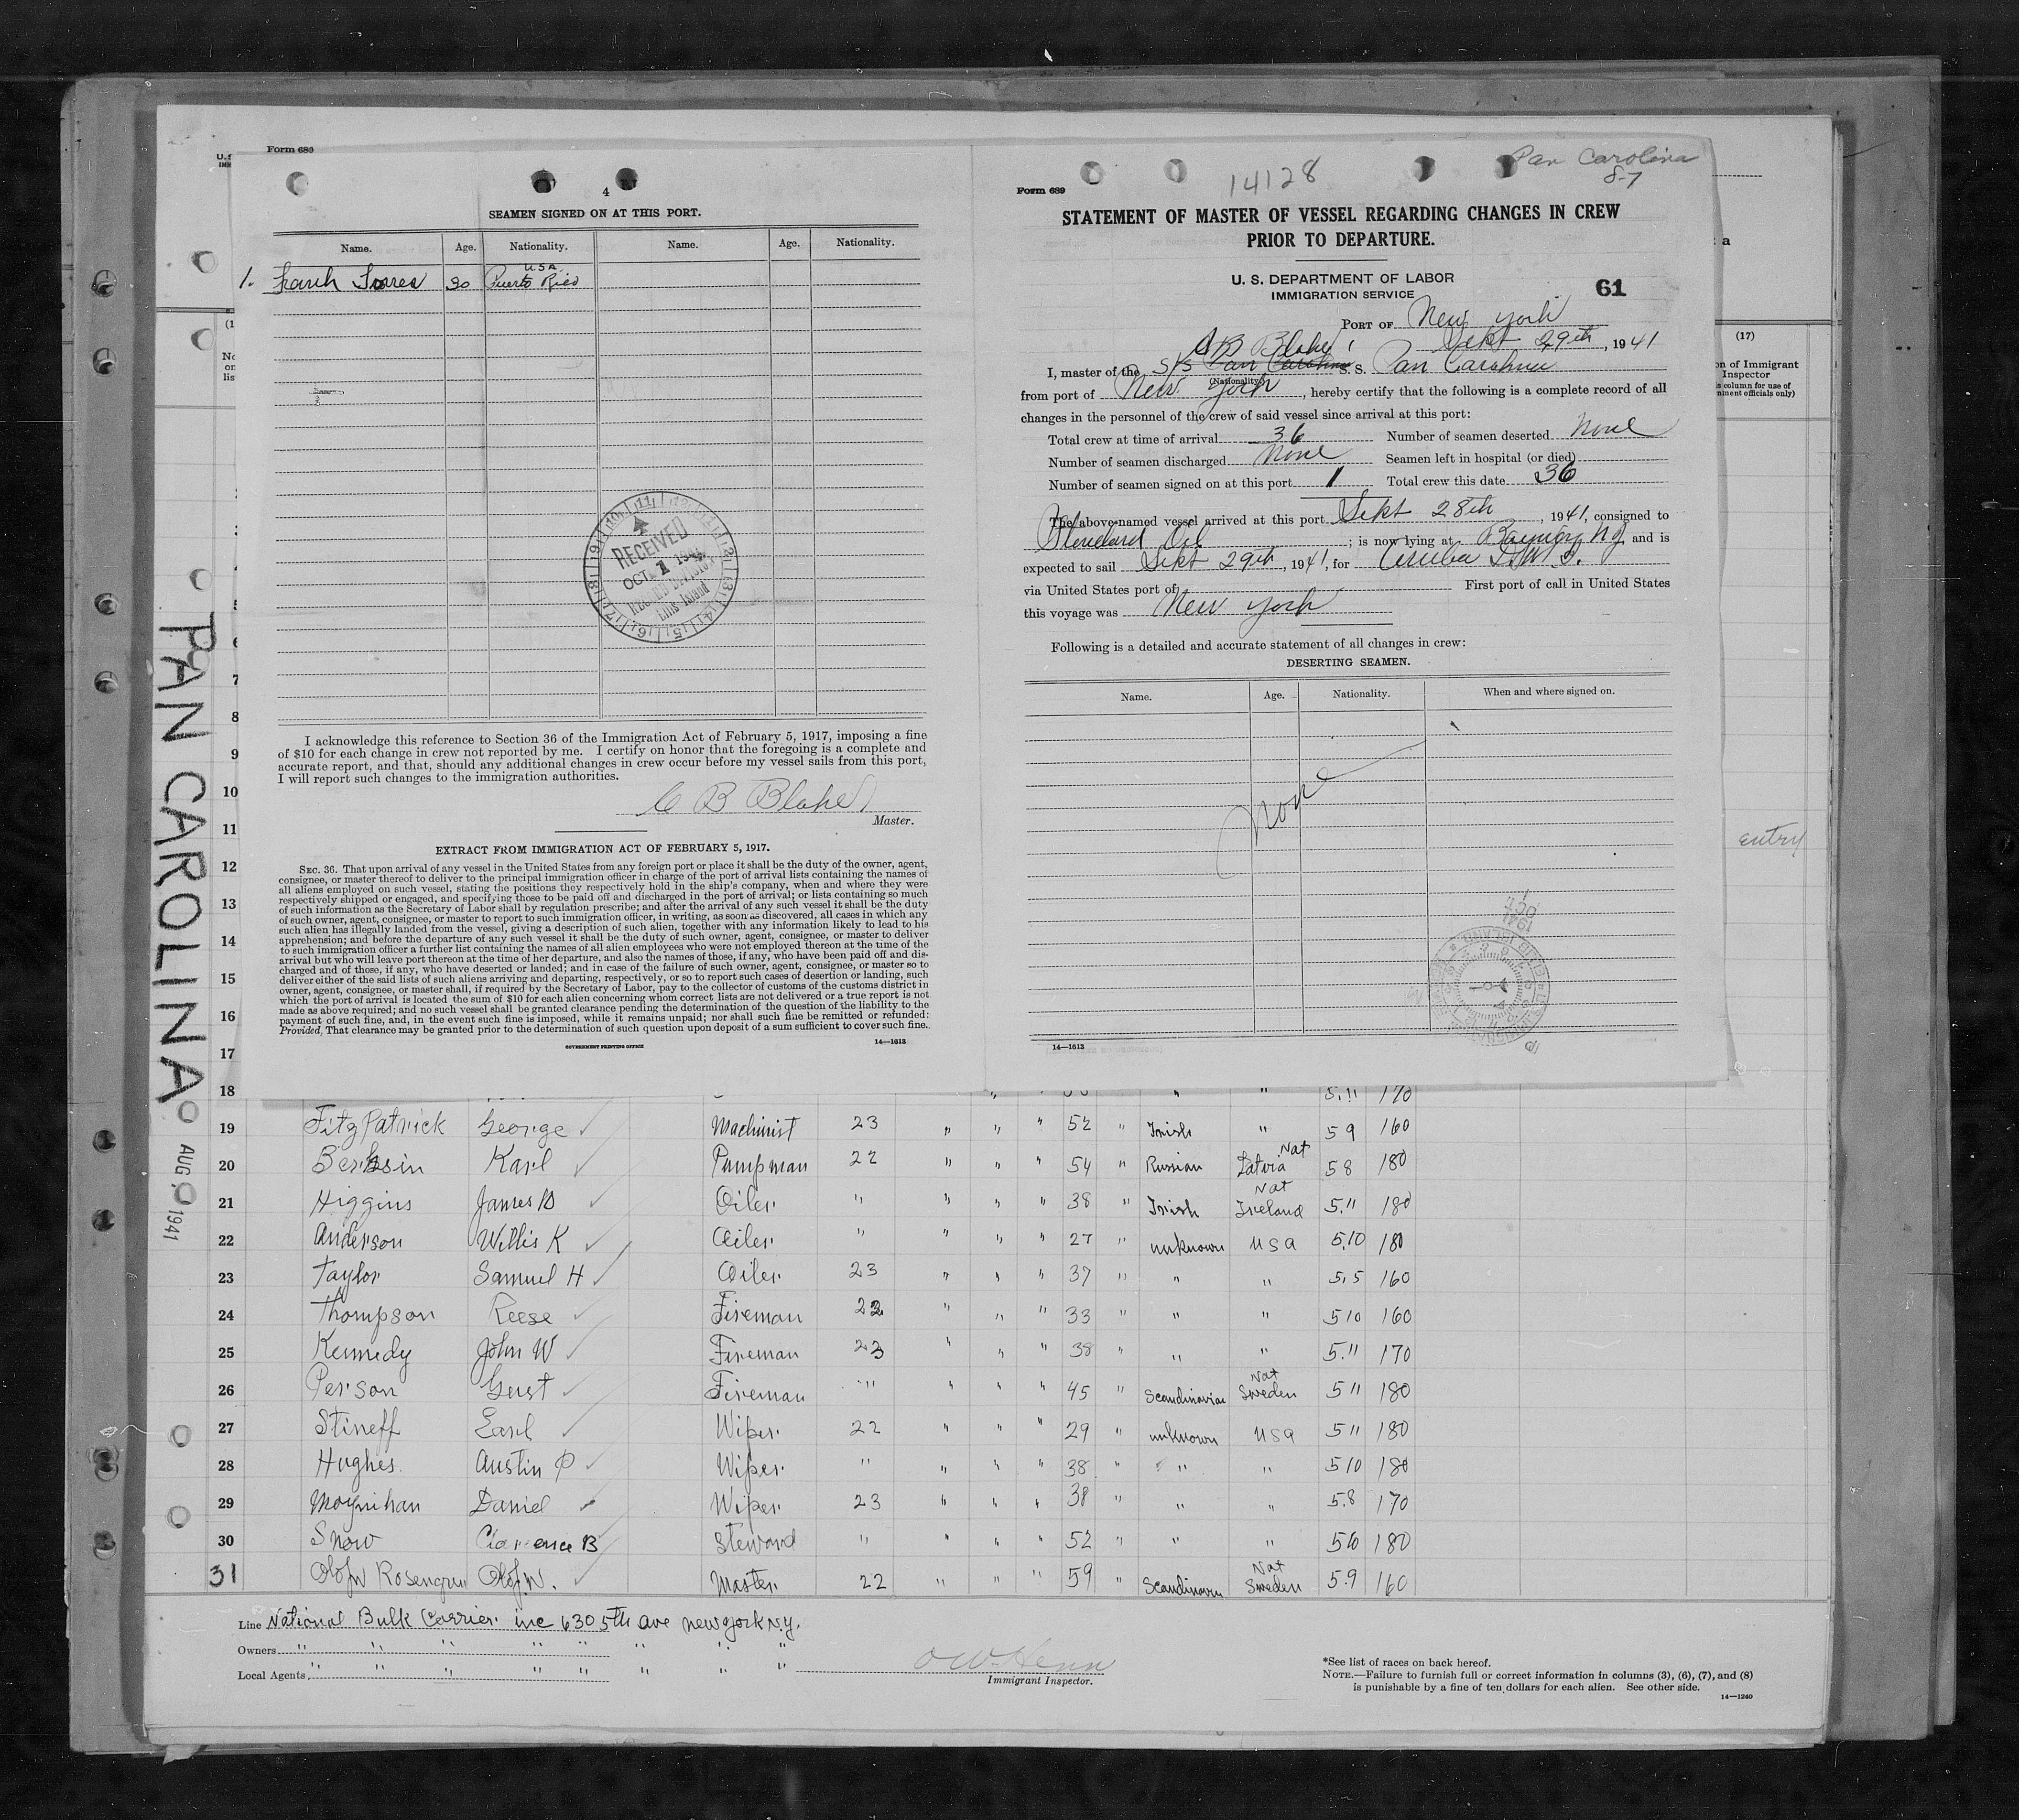 Form 686
4
SEAMEN SIGNED ON AT THIS PORT.
Name. Age. Nationality. Name. Age. Nationality.
1. 30 USA. Puerto Rico
RECEIVED
OCT 1 1941
RECORD DIVISION
Ellis Island
I acknowledge this reference to Section 36 of the Immigration Act of February 5, 1917, imposing a fine
of $10 for each change in crew not reported by me. I certify on honor that the foregoing is a complete and
accurate report, and that, should any additional changes in crew occur before my vessel sails from this port,
I will report such changes to the immigration authorities.
C B Blake
Master.
EXTRACT FROM IMMIGRATION ACT OF FEBRUARY 5, 1917.
SEC. 36. That upon arrival of any vessel in the United States from any foreign port or place it shall be the duty of the owner, agent,
consignee, or master thereof to deliver to the principal immigration officer in charge of the port of arrival lists containing the names of
all aliens employed on such vessel, stating the positions they respectively hold in the ship's company, when and where they were
respectively shipped or engaged, and specifying those to be paid off and discharged in the port of arrival; or lists containing so much
of such information as the Secretary of Labor shall by regulation prescribe; and after the arrival of any such vessel it shall be the duty
of such owner, agent, consignee, or master to report to such immigration officer, in writing, as soon as discovered, all cases in which any
such alien has illegally landed from the vessel, giving a description of such alien, together with any information likely to lead to his
apprehension; and before the departure of any such vessel it shall be the duty of such owner, agent, consignee, or master to deliver
to such immigration officer a further list containing the names of all alien employees who were not employed thereon at the time of the
arrival but who will leave port thereon at the time of her departure, and also the names of those, if any, who have been paid off and dis-
charged and of those, if any, who have deserted or landed; and in case of the failure of such owner, agent, consignee, or master so to
deliver either of the said lists of such aliens arriving and departing, respectively, or so to report such cases of desertion or landing, such
owner, agent, consignee, or master shall, if required by the Secretary of Labor, pay to the collector of customs of the customs district in
which the port of arrival is located the sum of $10 for each alien concerning whom correct lists are not delivered or a true report is not
made as above required; and no such vessel shall be granted clearance pending the determination of the question of the liability to the
payment of such fine, and, in the event such fine is imposed, while it remains unpaid; nor shall such fine be remitted or refunded:
Provided, That clearance may be granted prior to the determination of such question upon deposit of a sum sufficient to cover such fine.
GOVERNMENT PRINTING OFFICE 14—1613
Pan Carolina
8-7
14128
Form 689
STATEMENT OF MASTER OF VESSEL REGARDING CHANGES IN CREW
PRIOR TO DEPARTURE.
U. S. DEPARTMENT OF LABOR
IMMIGRATION SERVICE
61
PORT OF New York
Sept 29th, 1941
C B Blake
I, master of the S/S Pan Carolina S. S. Pan Carolina
(Nationality)
from port of New York, hereby certify that the following is a complete record of all
changes in the personnel of the crew of said vessel since arrival at this port:
Total crew at time of arrival 36 Number of seamen deserted None
Number of seamen discharged None Seamen left in hospital (or died)
Number of seamen signed on at this port 1 Total crew this date 36
The above-named vessel arrived at this port Sept 28th, 1941, consigned to
Standard Oil; is now lying at Bayway NJ and is
expected to sail Sept 29th, 1941, for Aruba D.W.I.
via United States port of First port of call in United States
this voyage was New York
Following is a detailed and accurate statement of all changes in crew:
DESERTING SEAMEN.
Name. Age. Nationality. When and where signed on.
None
OCT 1 1941
14—1613
(17)
on of Immigrant
Inspector
column for use of
nment officials only)
entry
PAN CAROLINA
AUG 9 1941
3
4
5
6
7
8
9
10
11
12
13
14
15
16
17
18 " " 5.11 170
19 FitzPatrick George Machinist 23 " " " 52 " Irish " 5 9 160
20 Karl Pumpman 22 " " " 54 " Russian Nat Latvia 5 8 180
21 Higgins James D Oiler " " " " 38 " Irish Nat Ireland 5.11 180
22 Anderson Willis K Oiler " " " " 27 " unknown USA 5.10 180
23 Taylor Samuel H Oiler 23 " " " 37 " " " 5.5 160
24 Thompson Reese Fireman 23 " " " 33 " " " 5 10 160
25 Kennedy John W Fireman 23 " " " 38 " " " 5.11 170
26 Person Gust Fireman " " " " 45 " Scandinavian Nat Sweden 5 11 180
27 Stineff Earl Wiper 22 " " " 29 " unknown USA 5 11 180
28 Hughes Austin P Wiper " " " " 38 " " " 5 10 180
29 Moynihan Daniel Wiper 23 " " " 38 " " " 5.8 170
30 Snow Clarence B Steward " " " " 52 " " " 5 6 180
31 Olof W Rosengren Olof W. Master 22 " " " 59 " Scandinavin Nat Sweden 5.9 160
Line National Bulk Carrier inc 630 5th ave new york N.Y.
Owners " " " " " " " "
Local Agents " " " " " " " "
Immigrant Inspector.
*See list of races on back hereof.
NOTE.—Failure to furnish full or correct information in columns (3), (6), (7), and (8)
is punishable by a fine of ten dollars for each alien. See other side.
14—1240